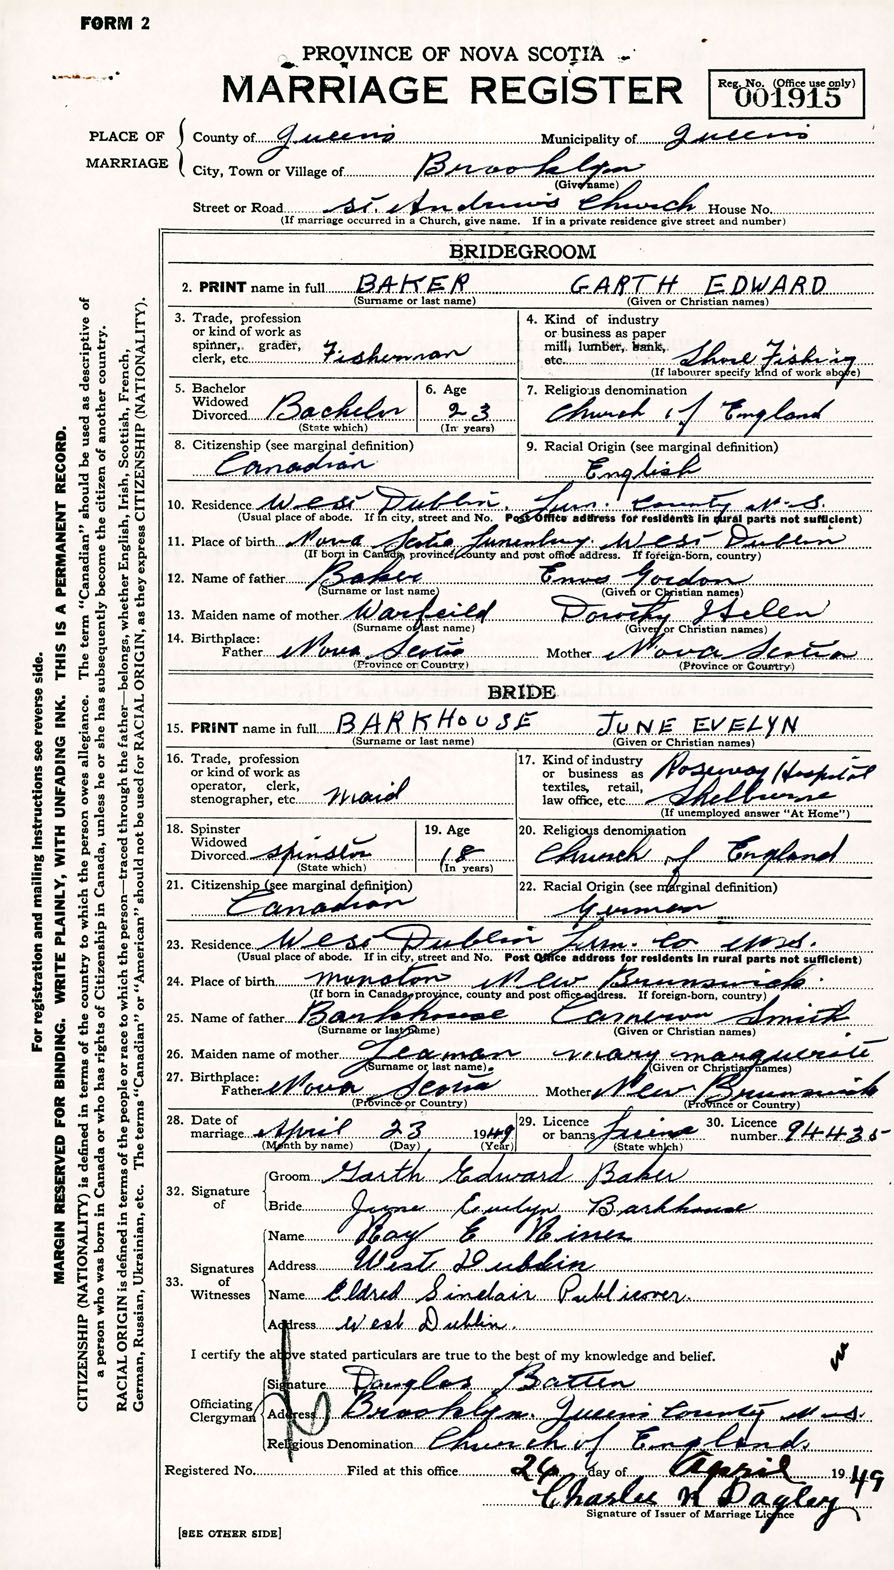 FORM 2
PROVINCE OF NOVA SCOTIA
MARRIAGE REGISTER
Reg. No. (Office use only)
001915
PLACE OF MARRIAGE
County of Queens Municipality of Queens
City, Town or Village of Brooklyn
(Give name)
Street or Road St. Andrew's Church House No.
(If marriage occurred in a Church, give name. If in a private residence give street and number)
BRIDEGROOM
2. PRINT name in full BAKER GARTH EDWARD
(Surname or last name) (Given or Christian names)
3. Trade, profession or kind of work as spinner, grader, clerk, etc. Fisherman
4. Kind of industry or business as paper mill, lumber, bank, etc. Shore Fishing
(If labourer specify kind of work above)
5. Bachelor Widowed Divorced Bachelor
(State which)
6. Age 23
(In years)
7. Religious denomination Church of England
8. Citizenship (see marginal definition) Canadian
9. Racial Origin (see marginal definition) English
10. Residence West Dublin, Lun. County N.S.
(Usual place of abode. If in city, street and No. Post Office address for residents in rural parts not sufficient)
11. Place of birth Nova Scotia Lunenburg. West Dublin
(If born in Canada, province, county and post office address. If foreign-born, country)
12. Name of father Baker Enos Gordon
(Surname or last name) (Given or Christian names)
13. Maiden name of mother Warfeild Dorothy Helen
(Surname or last name) (Given or Christian names)
14. Birthplace:
Father Nova Scotia Mother Nova Scotia
(Province or Country) (Province or Country)
BRIDE
15. PRINT name in full BARKHOUSE JUNE EVELYN
(Surname or last name) (Given or Christian names)
16. Trade, profession or kind of work as operator, clerk, stenographer, etc. Maid
17. Kind of industry or business as textiles, retail, law office, etc. Roseway Hospital Shelburne
(If unemployed answer "At Home")
18. Spinster Widowed Divorced Spinster
(State which)
19. Age 18
(In years)
20. Religious denomination Church of England
21. Citizenship (see marginal definition) Canadian
22. Racial Origin (see marginal definition) German
23. Residence West Dublin Lun. Co N.S.
(Usual place of abode. If in city, street and No. Post Office address for residents in rural parts not sufficient)
24. Place of birth Moncton New Brunswick.
(If born in Canada, province, county and post office address. If foreign-born, country)
25. Name of father Barkhouse Cameron Smith
(Surname or last name) (Given or Christian names)
26. Maiden name of mother Leaman Mary Marguerite
(Surname or last name) (Given or Christian names)
27. Birthplace:
Father Nova Scotia Mother New Brunswick
(Province or Country) (Province or Country)
28. Date of marriage April 23 1949
(Month by name) (Day) (Year)
29. Licence or banns
(State which)
30. Licence number 94435
32. Signature of
Groom Garth Edward Baker
Bride June Evelyn Barkhouse
33. Signatures of Witnesses
Name Ray E
Address West Dublin
Name Eldred Sinclair Publicover.
Address West Dublin.
I certify the above stated particulars are true to the best of my knowledge and belief.
Officiating Clergyman
Signature Douglas Batten
Address Brooklyn. Queens County N.S.
Religious Denomination Church of England.
Registered No. Filed at this office 26 day of April 1949
Charles N Dagley
Signature of Issuer of Marriage Licence
[SEE OTHER SIDE]
For registration and mailing instructions see reverse side.
MARGIN RESERVED FOR BINDING. WRITE PLAINLY, WITH UNFADING INK. THIS IS A PERMANENT RECORD.
CITIZENSHIP (NATIONALITY) is defined in terms of the country to which the person owes allegiance. The term "Canadian" should be used as descriptive of
a person who was born in Canada or who has rights of Citizenship in Canada, unless he or she has subsequently become the citizen of another country.
RACIAL ORIGIN is defined in terms of the people or race to which the person—traced through the father—belongs, whether English, Irish, Scottish, French,
German, Russian, Ukrainian, etc. The terms "Canadian" or "American" should not be used for RACIAL ORIGIN, as they express CITIZENSHIP (NATIONALITY).